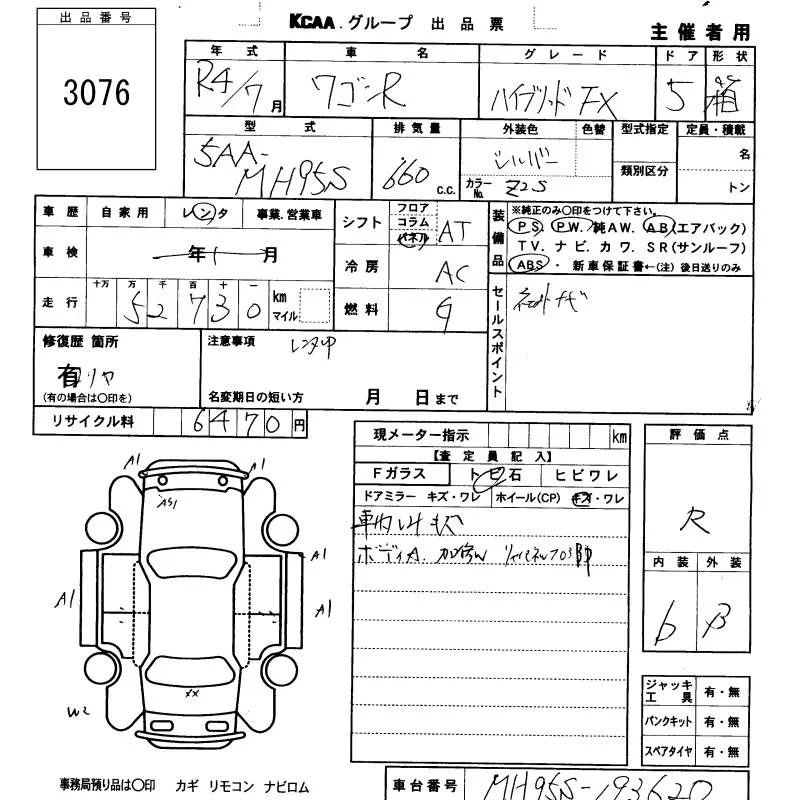 出品番号
3076
KCAA.グループ 出品票
主催者用
年式 車名 グレード ドア 形状
R4/7月 ワゴンR ハイブリッドFX 5 箱
型式 排気量 外装色 色替 型式指定 定員・積載
5AA-MH95S 660 c.c. シルバー 類別区分 名
カラーNo. Z2S トン
車歴 自家用 レンタ 事業.営業車
車検 年 月
走行 十万 万 千 百 十 一
52730 km マイル
シフト フロア コラム パネル AT
冷房 AC
燃料 G
装備品
※純正のみ○印をつけて下さい。
PS. PW. 純AW. AB(エアバック)
TV. ナビ. カワ. SR(サンルーフ)
ABS ・ 新車保証書←(注) 後日送りのみ
セールスポイント
修復歴 箇所
有 リヤ
(有の場合は○印を)
注意事項 レンタ
名変期日の短い方 月 日まで
リサイクル料 6470円
現メーター指示 km
【査定員記入】
Fガラス トビ石 ヒビワレ
ドアミラー キズ・ワレ ホイール(CP) キズ・ワレ
車内
ボディA.
評価点
R
内装 外装
b B
A1 A1
A51
A1
A1 A1
XX
W2
ジャッキ 工具 有・無
パンクキット 有・無
スペアタイヤ 有・無
事務局預り品は○印 カギ リモコン ナビロム
車台番号 MH95S-193620